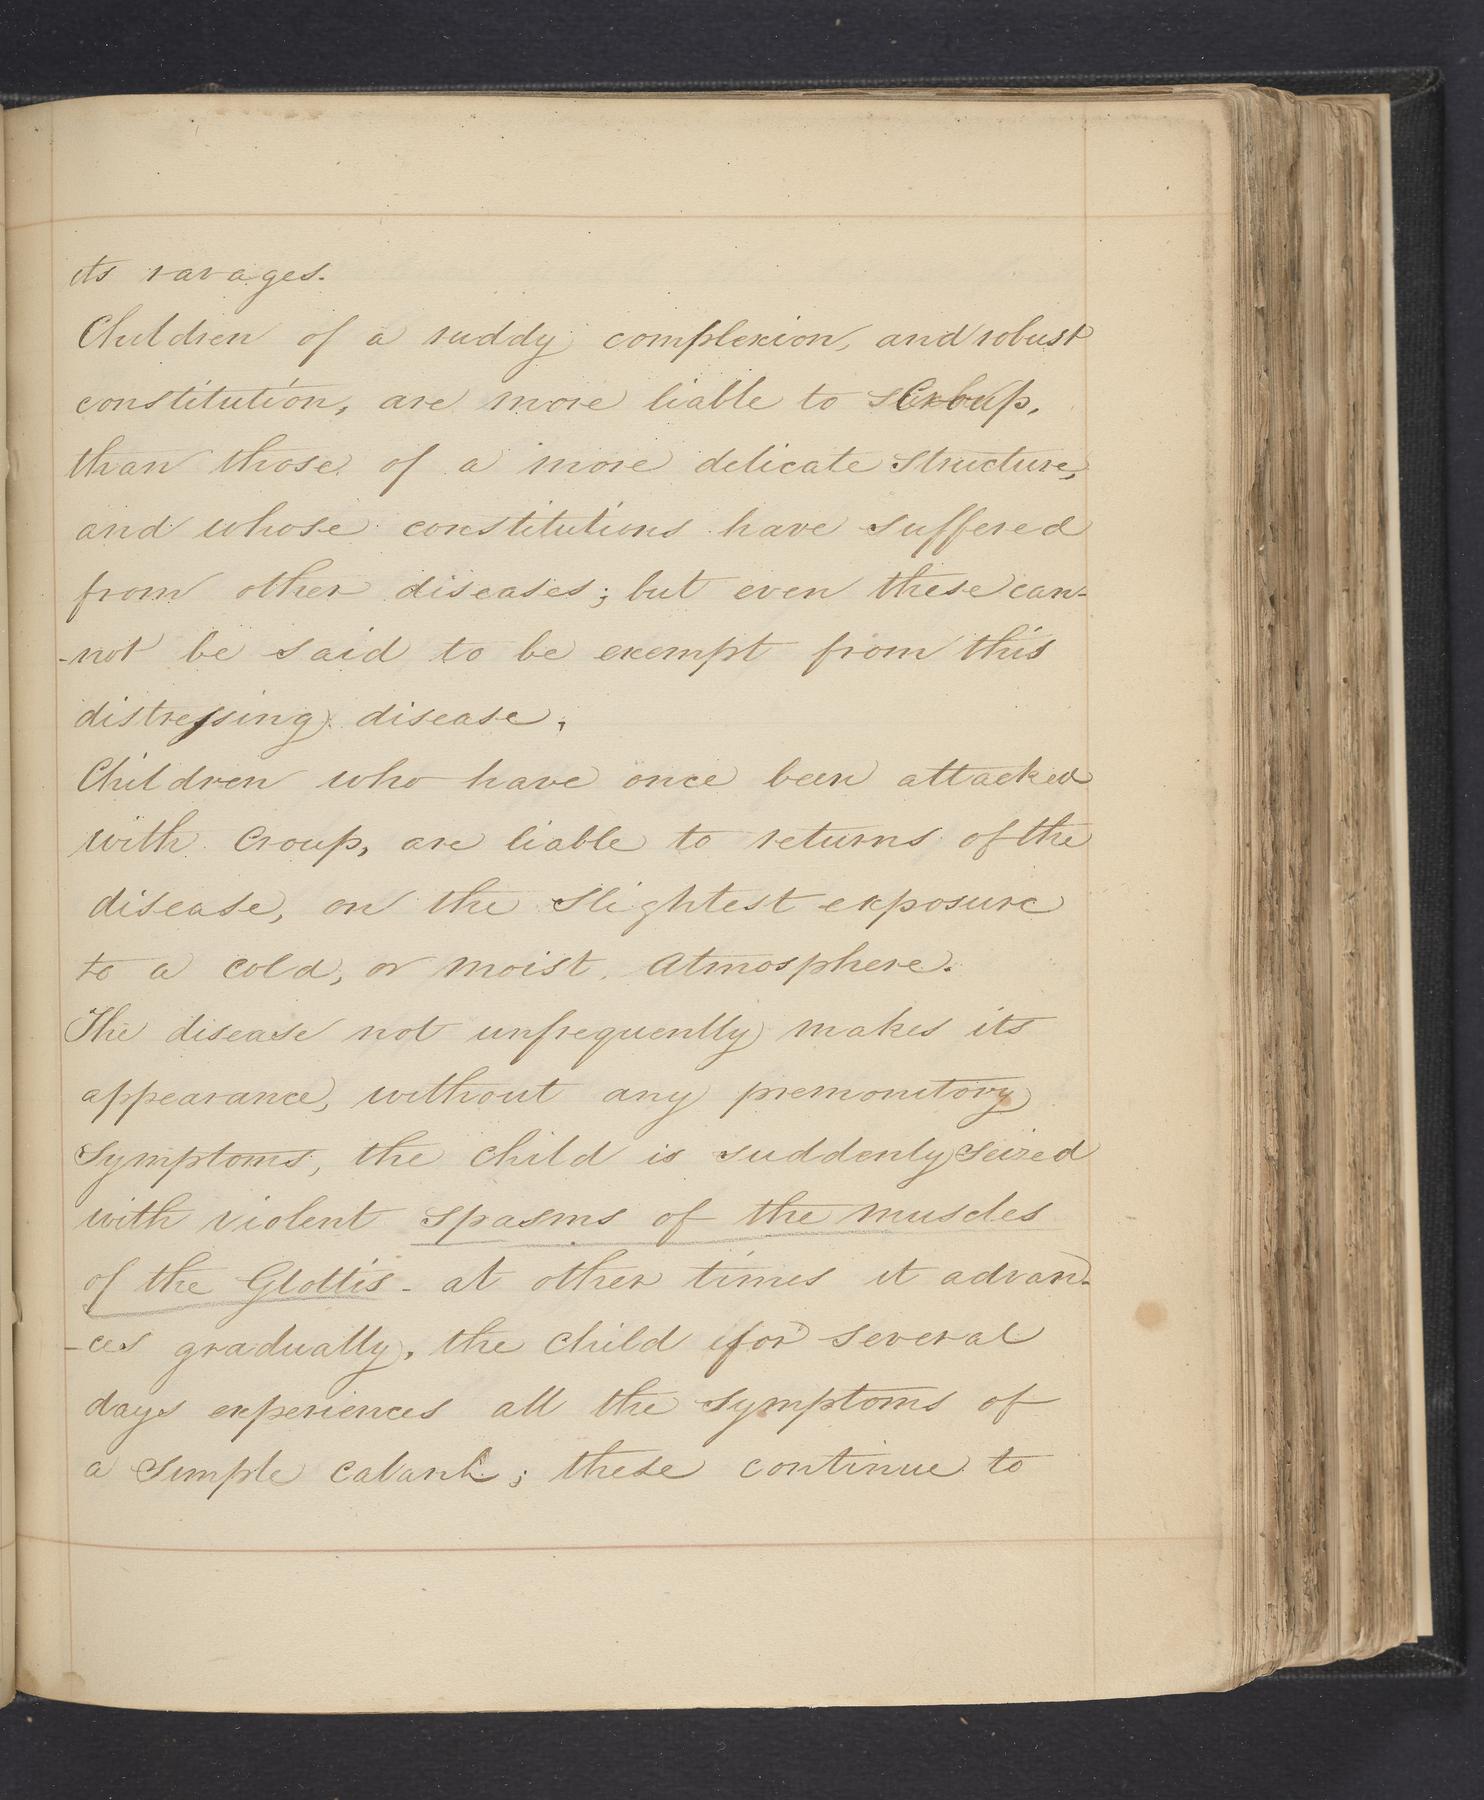 its ravages.
Children of a ruddy complexion, and robust
constitution, are more liable to Croup,
than those of a more delicate structure,
and whose constitutions have suffered
from other diseases; but even these can-
-not be said to be exempt from this
distressing disease,
Children who have once been attacked
with Croup, are liable to returns of the
disease, on the slightest exposure
to a cold, or moist. Atmosphere.
The disease not unfrequently makes its
appearance, without any premonitory
symptoms, the child is suddenly seized
with violent spasms of the muscles
of the Glottis - at other times it advan-
-ces gradually, the child for several
days experiences all the symptoms of
a simple catarrh; these continue to